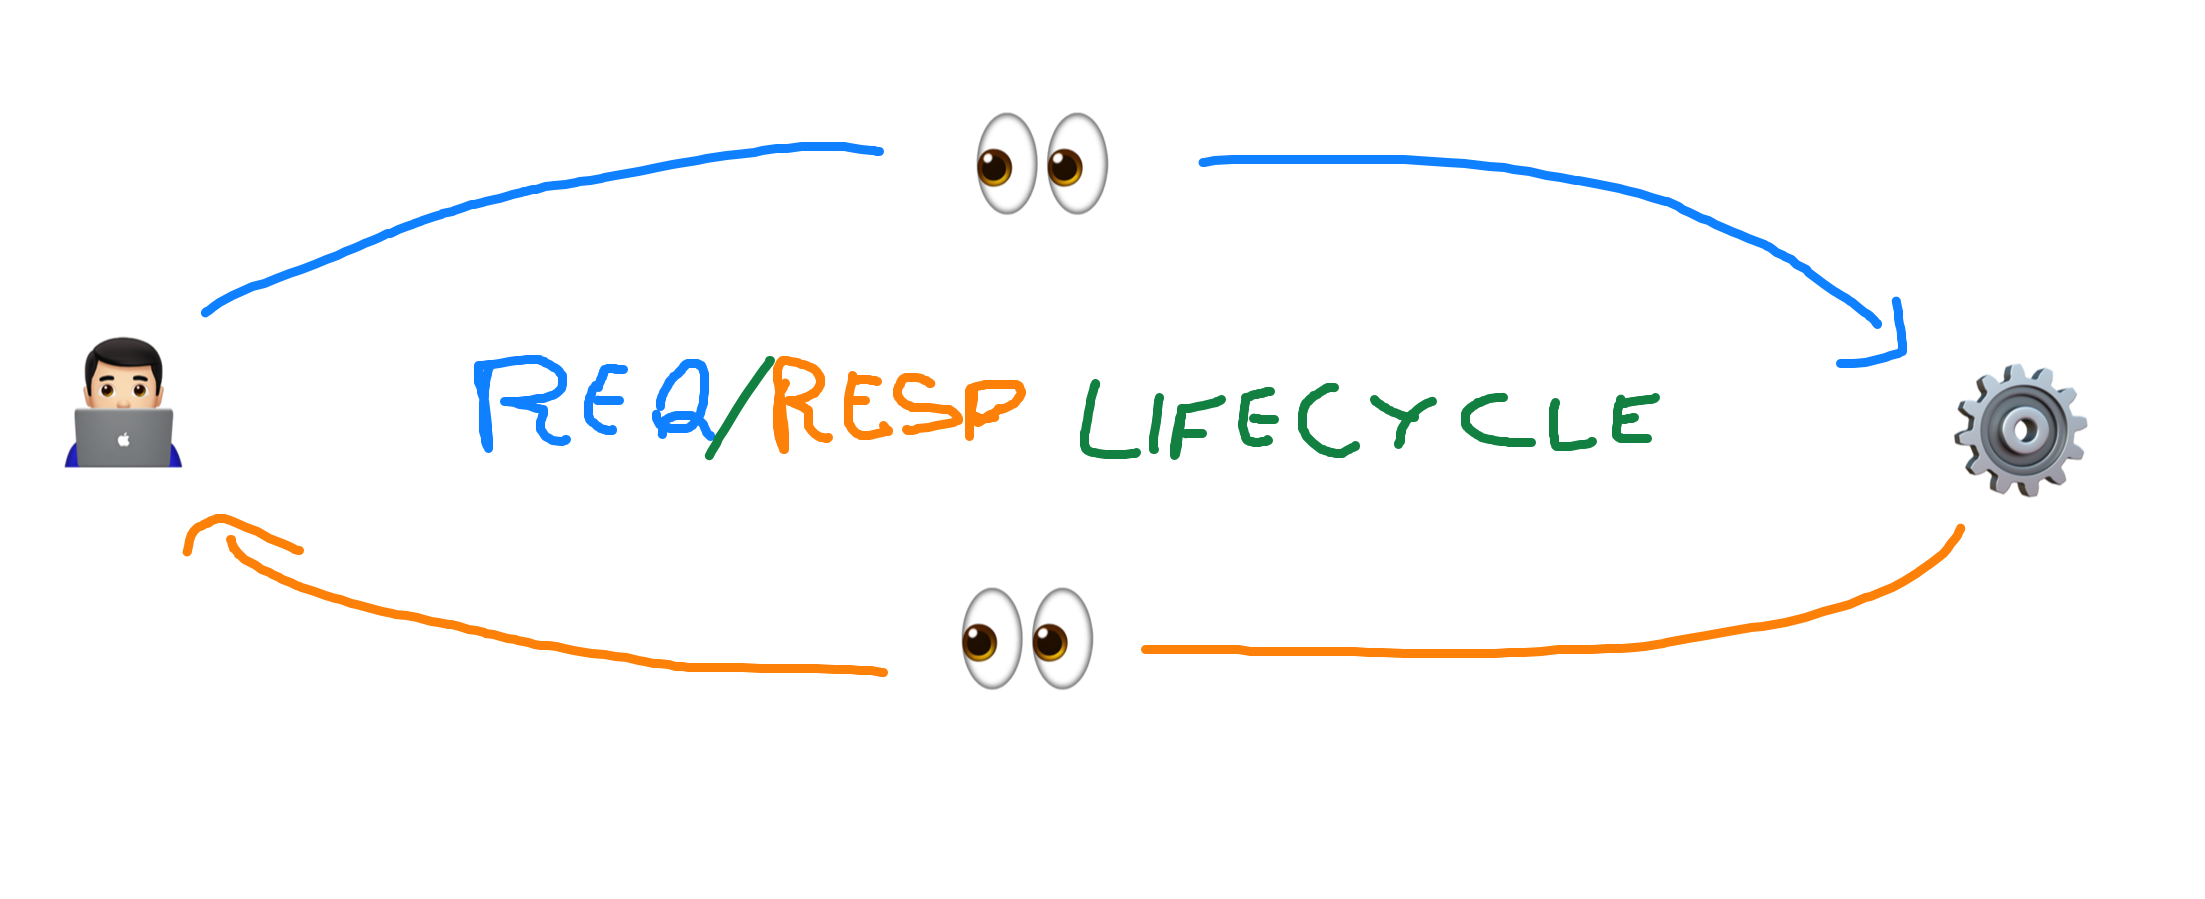 REQ/RESP LIFECYCLE